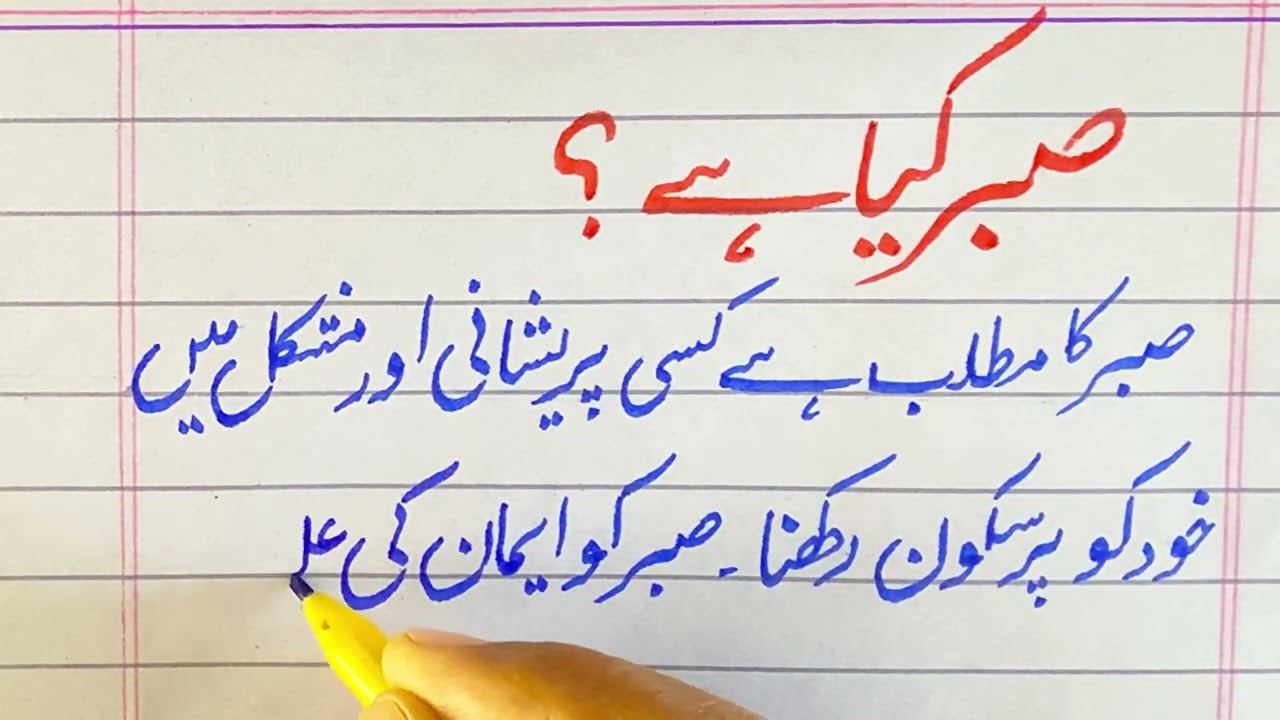 صبر کیا ہے ؟
صبر کا مطلب ہے کسی پریشانی اور مشکل میں
خود کو پرسکون رکھنا ۔ صبر کو ایمان کی عل